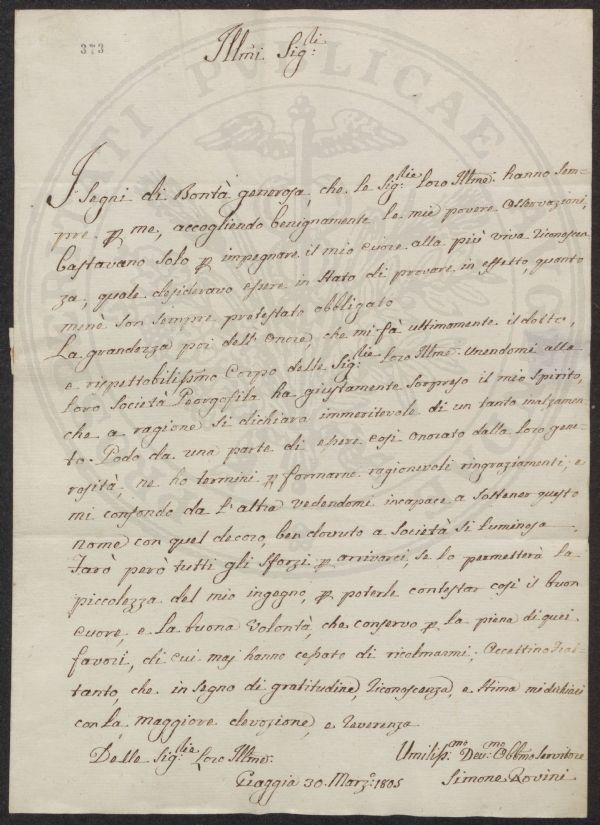 373
Illmi Sig:li
I Segni di Bontà generosa, che le Sig:rie Loro Illme: hanno sem-
pre p me, accogliendo benignamente le mie povere Osservazioni,
bastavano solo p impegnare il mio cuore alla più viva riconoscen
za, quale desideravo essere in stato di provare in effetto, quanto
menè son sempre protestato obbligato
La grandezza poi dell'Onore, che mi fà ultimamente il dotto,
e rispettabilissimo Corpo delle Sig:rie Loro Illme: Unendomi alla
loro Società Georgofila ha giustamente sorpreso il mio Spirito,
che a ragione si dichiara immeritevole di un tanto inalzamen-
to. Godo da una parte di essere così onorato dalla loro gene-
rosità; ne ho termini p formarne ragionevoli ringraziamenti; e
mi confondo da l'altra vedendomi incapace a Sostener questo
nome con quel decoro, ben dovuto a Società sì luminosa
Farò però tutti gli sforzi p arrivarci, se lo permetterà la
piccolezza del mio ingegno, p poterle contestar così il buon
cuore, e la buona Volontà, che conservo p la piena di quei
favori, di cui maj hanno cessato di ricolmarmi; Accettino frat-
tanto, che in segno di gratitudine, riconoscenza, e stima mi dichiari
con la maggiore devozione, e reverenza
Delle Sig:rie Loro Illme:
Umiliss:mo Dev:mo Obbmo Servitore
Piaggia 30. Marz:o 1805
Simone Rovini
PVBLICAE